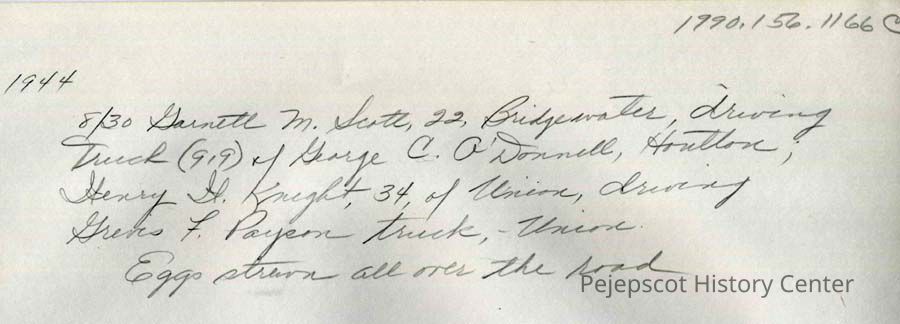 1990.156.1166 C
1944
8/30 Garnett M. Scott, 22, Bridgewater, driving
Truck (919) of George C. O'Donnell, Houlton,
Henry H. Knight, 34, of Union, driving
F. Payson truck, - Union.
Eggs strewn all over the road
Pejepscot History Center